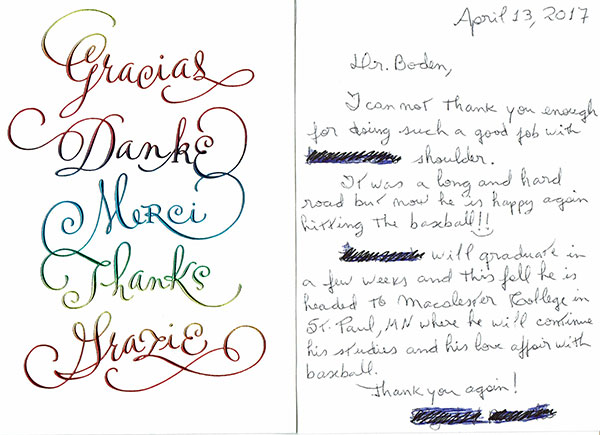 Gracias
Danke
Merci
Thanks
Grazie
April 13, 2017
Dr. Boden,
I can not thank you enough
for doing such a good job with
shoulder.
It was a long and hard
road but now he is happy again
hitting the baseball!!
will graduate in
a few weeks and this fall he is
headed to Macalester College in
St. Paul, MN where he will continue
his studies and his love affair with
baseball.
Thank you again!